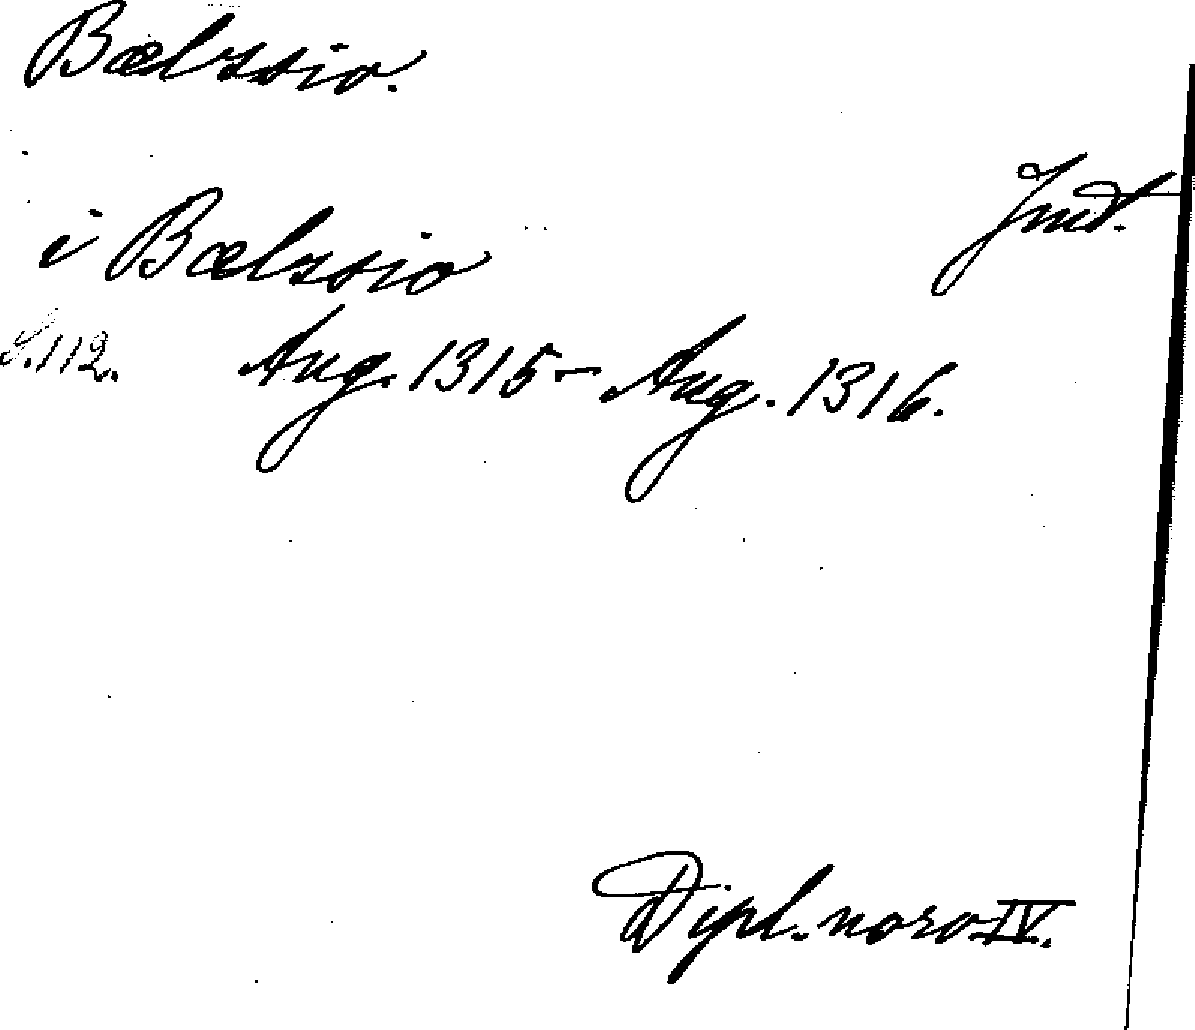 Bælssio.
Jmt.
i Bælssio
S. 112. Aug. 1315 - Aug. 1316.
Dipl. norv IV.